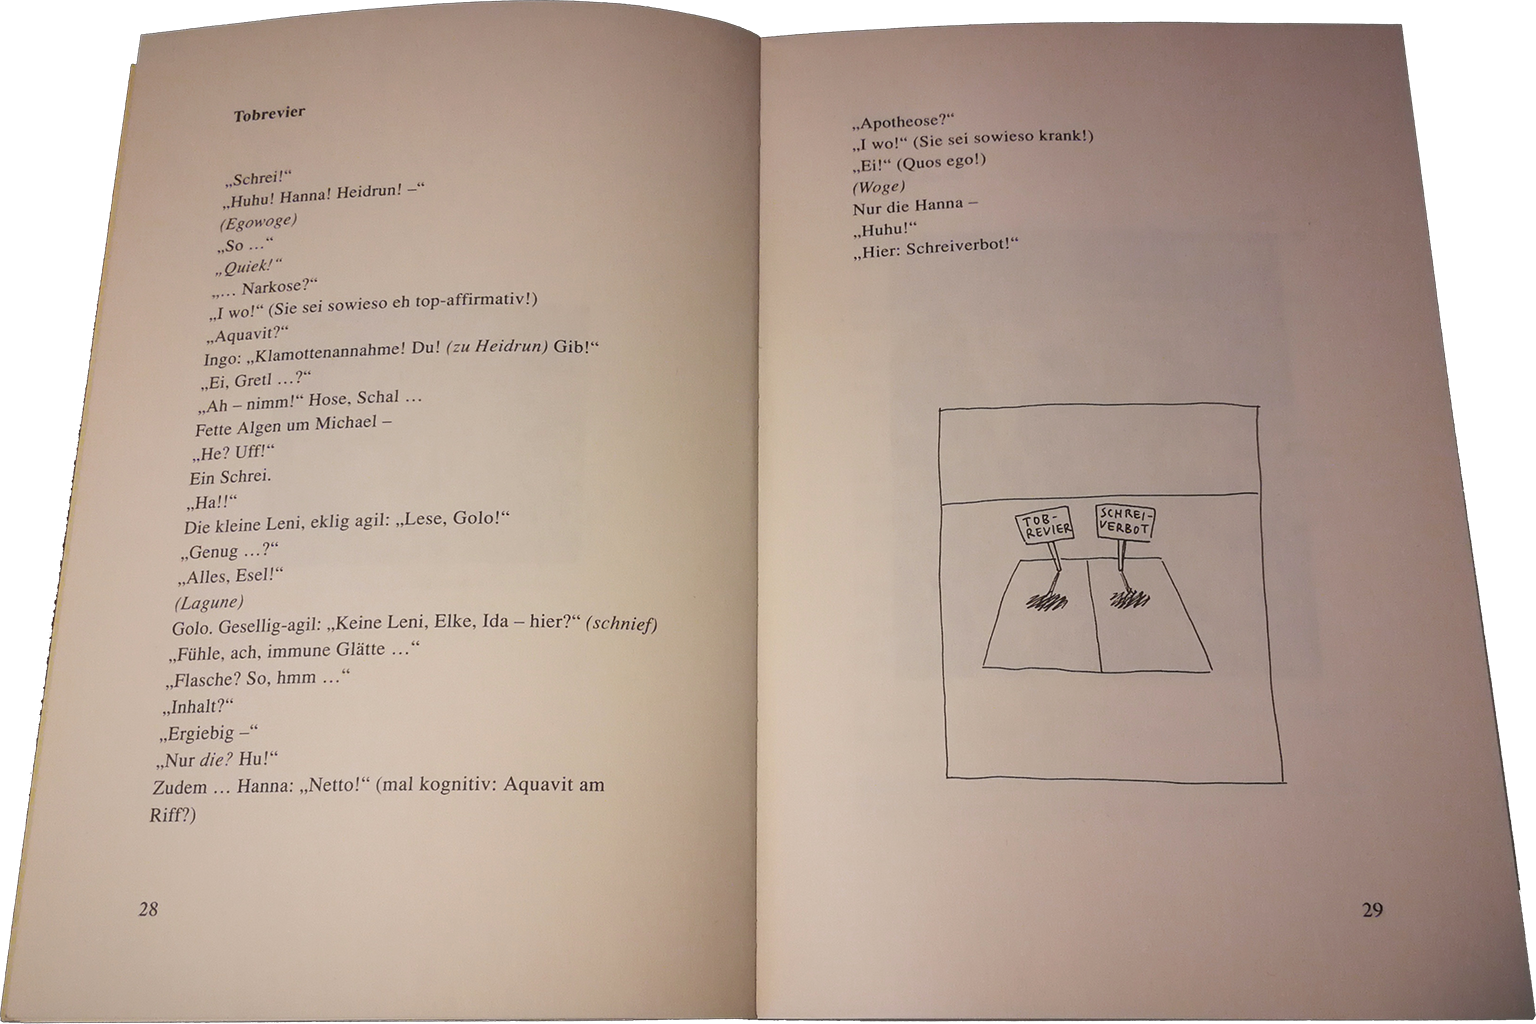 Tobrevier
„Schrei!“
„Huhu! Hanna! Heidrun! –“
(Egowoge)
„So …“
„Quiek!“
„… Narkose?“
„I wo!“ (Sie sei sowieso eh top-affirmativ!)
„Aquavit?“
Ingo: „Klamottenannahme! Du! (zu Heidrun) Gib!“
„Ei, Gretl …?“
„Ah – nimm!“ Hose, Schal …
Fette Algen um Michael –
„He? Uff!“
Ein Schrei.
„Ha!!“
Die kleine Leni, eklig agil: „Lese, Golo!“
„Genug …?“
„Alles, Esel!“
(Lagune)
Golo. Gesellig-agil: „Keine Leni, Elke, Ida – hier?“ (schnief)
„Fühle, ach, immune Glätte …“
„Flasche? So, hmm …“
„Inhalt?“
„Ergiebig –“
„Nur die? Hu!“
Zudem … Hanna: „Netto!“ (mal kognitiv: Aquavit am
Riff?)
28
„Apotheose?“
„I wo!“ (Sie sei sowieso krank!)
„Ei!“ (Quos ego!)
(Woge)
Nur die Hanna –
„Huhu!“
„Hier: Schreiverbot!“
TOB-
REVIER
SCHREI-
VERBOT
29